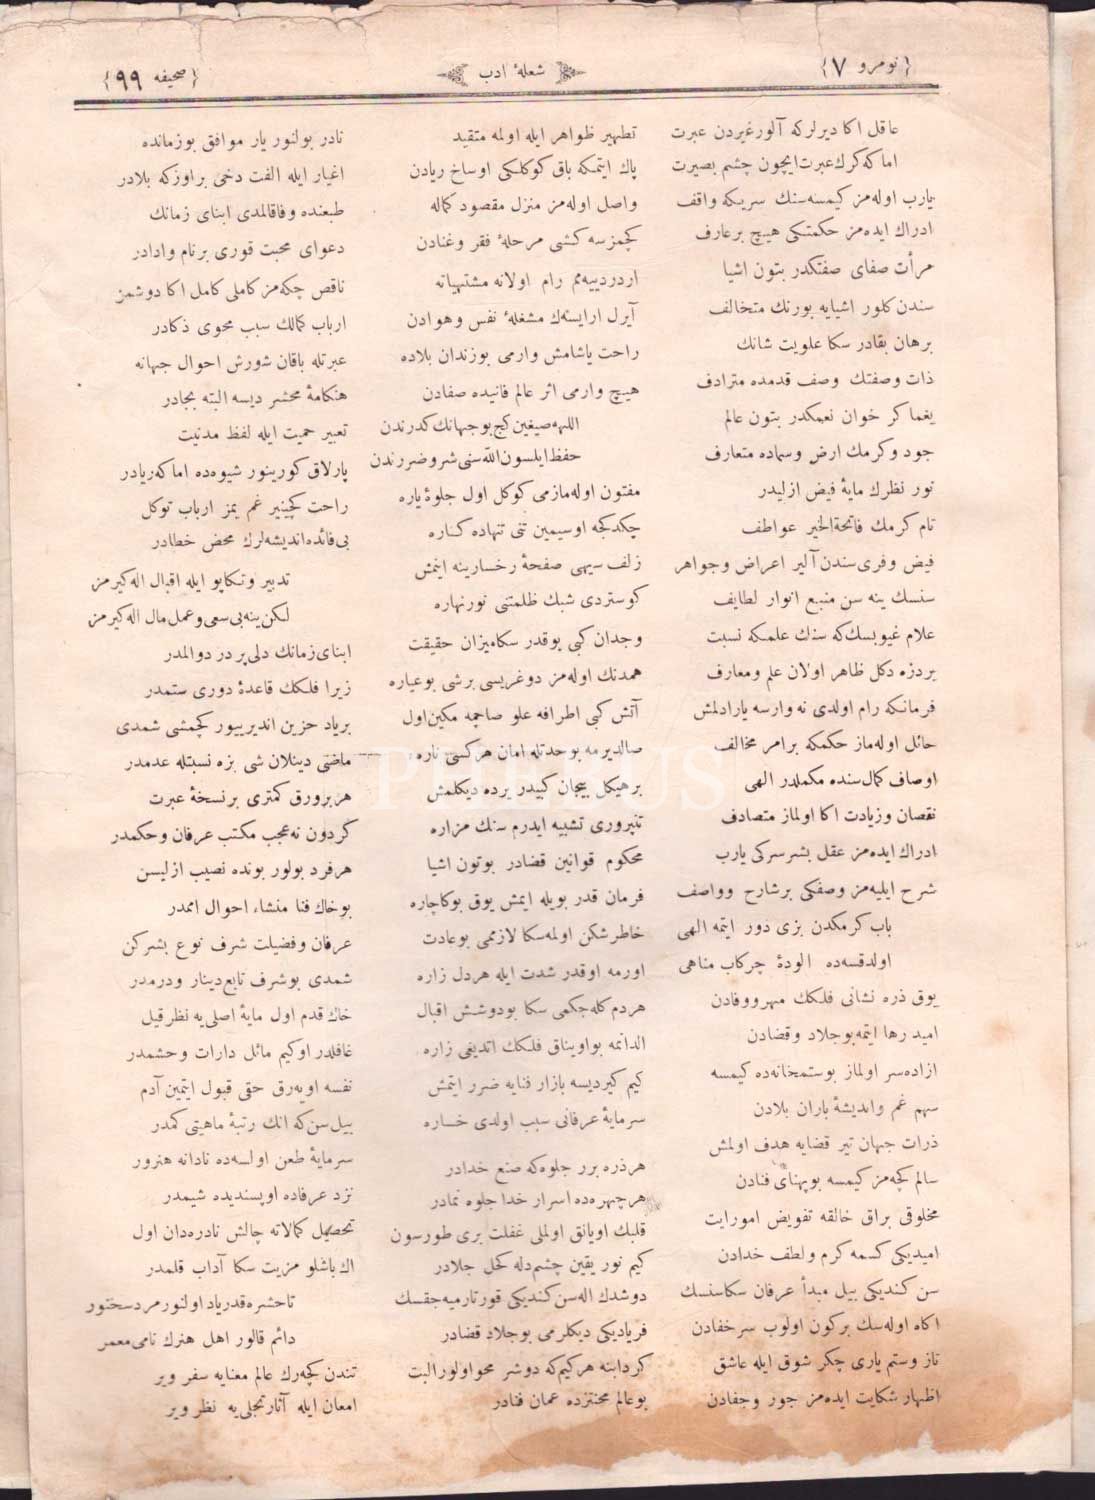 نومرو {٧}
شعلهٔ ادب
صحیفه {٩٩}
عاقل اکا دیرلرکه آلور غیردن عبرت
اما که کرک عبرت ایچون چشم بصیرت
یارب اوله‌مز کیمسه سنك سریکه واقف
ادراك ایده‌مز حکمتکی هیچ بر عارف
مرأت صفای صفتکدر بتون اشیا
سندن کلور اشیایه بو رنك متخالف
برهان بقادر سکا علویت شانك
ذات وصفتك وصف قدمده مترادف
یغما کر خوان نعمکدر بتون عالم
جود و کرمك ارض وسماده متعارف
نور نظرك مایهٔ فیض ازلیدر
نام کرمك فاتحة الخیر عواطف
فیض وفری سندن آلیر اعراض وجواهر
سنسك ینه سن منبع انوار لطایف
علام غیوبسك که سنك علمکه نسبت
بر ذره دکل ظاهر اولان علم ومعارف
فرمانکه رام اولدی نه وارسه یارادلمش
حائل اوله‌ماز حکمکه بر امر مخالف
اوصاف کمال سنده مکملدر الهی
نقصان وزیادت اکا اولماز متصادف
ادراك ایده‌مز عقل بشر سرکی یارب
شرح ایلیه‌مز وصفکی بر شارح وواصف
باب کرمکدن بزی دور ایتمه الهی
اولدقسه‌ده آلودهٔ چرکاب مناهی
یوق ذره نشانی فلکك مهر ووفادن
امید رها ایتمه بو جلاد وقضادن
ازاده‌سر اولماز بو ستمخانه‌ده کیمسه
سهم غم واندیشهٔ باران بلادن
ذرات جهان تیر قضایه هدف اولمش
سالم کچه‌مز کیمسه بو پهنای فنادن
مخلوقی براق خالقه تفویض امور ایت
امیدیکی کسمه کرم ولطف خدادن
سن کندیکی بیل مبدأ عرفان سکا سنسك
اکاه اوله‌سك بر کون اولوب سر خفادن
ناز وستم یاری چکر شوق ایله عاشق
اظهار شکایت ایده‌مز جور وجفادن
تطهیر ظواهر ایله اولمه متقید
پاك ایتمکه باق کوکلکی اوساخ ریادن
واصل اوله‌مز منزل مقصود کماله
کچمزسه کشی مرحلهٔ فقر وغنادن
رام اولانه مشتهیاته
آیرل ارایسه‌ك مشغلهٔ نفس وهوادن
راحت یاشامش وارمی بو زندان بلاده
هیچ وارمی اثر عالم فانیده صفادن
اللهه صیغین کچ بو جهانك کدرندن
حفظ ایلسون الله سنی شر وضررندن
مفتون اوله‌مازمی کوکل اول جلوهٔ یاره
چکدکجه او سیمین تنی تنهاده کناره
زلف سیهی صفحهٔ رخسارینه اینمش
کوستردی شبك ظلمتنی نور نهاره
وجدان کبی یوقدر سکا میزان حقیقت
همدنك اوله‌مز دوغریسی بر شی بو عیاره
آتش کبی اطرافه علو صاچمه مکین اول
صالدیرمه بو حدتله امان هر کسی ناره
بر هیکل بیجان کبیدر یرده دیکلمش
تنپروری تشبیه ایدرم سنك مزاره
محکوم قوانین قضادر بوتون اشیا
فرمان قدر بویله ایمش یوق بوکا چاره
خاطرشکن اولمه سکا لازممی بو عادت
اورمه او قدر شدت ایله هر دل زاره
هردم کله‌جکمی سکا بو دوشش اقبال
الدانمه بو اویناق فلکك اتدیغی زاره
کیم کیردیسه بازار فنایه ضرر ایتمش
سرمایهٔ عرفانی سبب اولدی خساره
هر ذره برر جلوه‌که صنع خدادر
هر چهره‌ده اسرار خدا جلوه نمادر
قلبك اویانق اولملی غفلت بری طورسون
کیم نور یقین چشم دله کحل جلادر
دوشدك اله سن کندیکی قورتارمیه‌جقسك
فریادیکی دیکلرمی بو جلاد قضادر
کردابنه هر کیم که دوشر محو اولور البت
بو عالم محنتزده عمان فنادر
نادر بولنور یار موافق بو زمانده
اغیار ایله الفت دخی بر اوزکه بلادر
طبعنده وفا قالمدی ابنای زمانك
دعوای محبت قوری بر نام وادادر
ناقص چکه‌مز کاملی کامل اکا دوشمز
ارباب کمالك سبب محوی ذکادر
عبرتله باقان شورش احوال جهانه
هنکامهٔ محشر دیسه البته بجادر
تعبیر حمیت ایله لفظ مدنیت
پارلاق کورینور شیوه‌ده اما که ریادر
راحت کچنیر غم یمز ارباب توکل
بی فائده اندیشه‌لرك محض خطادر
تدبیر وتکاپو ایله اقبال اله کیرمز
لکن ینه بی سعی وعمل مال اله کیرمز
ابنای زمانك دلی پر درد والمدر
زیرا فلکك قاعدهٔ دوری ستمدر
بر یاد حزین اندیرییور کچمشی شمدی
ماضی دینلان شی بزه نسبتله عدمدر
هر بر ورق کمتری بر نسخهٔ عبرت
کردون نه عجب مکتب عرفان وحکمدر
هر فرد بولور بونده نصیب ازلیسن
بو خاك فنا منشاء احوال اممدر
عرفان وفضیلت شرف نوع بشر کن
شمدی بو شرف تابع دینار ودرمدر
خاك قدم اول مایهٔ اصلی‌یه نظر قیل
غافلدر او کیم مائل دارات وحشمدر
نفسه اویه‌رق حقی قبول ایتمین آدم
بیل سن که انك رتبهٔ ماهیتی کمدر
سرمایهٔ طعن اولسه‌ده نادانه هنرور
نزد عرفاده او پسندیده شیمدر
تحصیل کمالاته چالش نادره‌دان اول
اك باشلو مزیت سکا آداب قلمدر
تا حشره قدر یاد اولنور مرد سخنور
دائم قالور اهل هنرك نامی معمر
تندن کچه‌رك عالم معنایه سفر ویر
امعان ایله آثار تجلی‌یه نظر ویر
PHEBUS